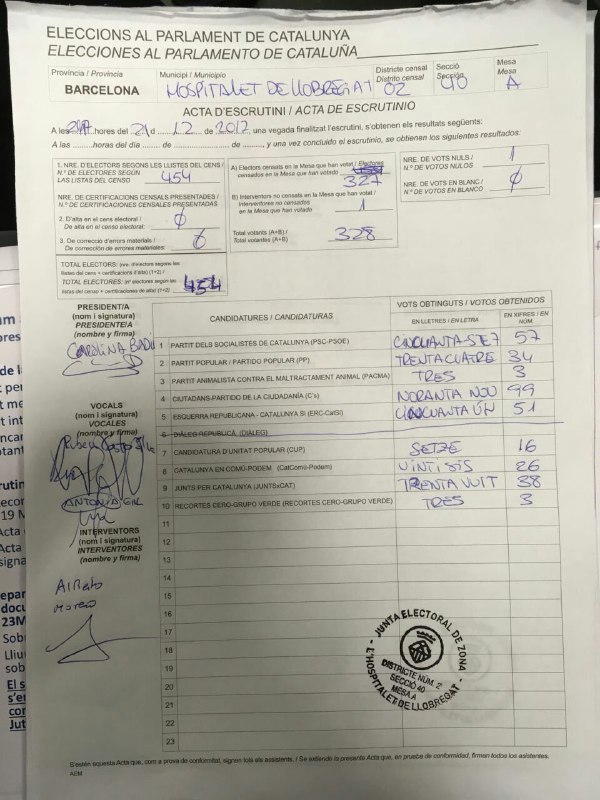 ELECCIONS AL PARLAMENT DE CATALUNYA
ELECCIONES AL PARLAMENTO DE CATALUÑA
Província / Provincia
BARCELONA
Municipi / Municipio
HOSPITALET DE LLOBREGAT
Districte censal
Distrito censal
02
Secció
Sección
40
Mesa
Mesa
A
ACTA D'ESCRUTINI / ACTA DE ESCRUTINIO
A les hores del 21 d 12 de 2017 una vegada finalitzat l'escrutini, s'obtenen els resultats següents:
A las horas del día de de y una vez concluido el escrutinio, se obtienen los siguientes resultados:
1. NRE. D'ELECTORS SEGONS LES LLISTES DEL CENS /
N.º DE ELECTORES SEGÚN
LAS LISTAS DEL CENSO 454
NRE. DE CERTIFICACIONS CENSALS PRESENTADES /
N.º DE CERTIFICACIONES CENSALES PRESENTADAS
2. D'alta en el cens electoral / 0
De alta en el censo electoral:
3. De correcció d'errors materials / 0
De corrección de errores materiales:
TOTAL ELECTORS: (nre. d'electors segons les
llistes del cens + certificacions d'alta) (1+2) /
TOTAL ELECTORES: (nº electores según las
listas del censo + certificaciones de alta) (1+2) 454
A) Electors censats en la Mesa que han votat / Electores
censados en la Mesa que han votado
327
B) Interventors no censats en la Mesa que han votat /
Interventores no censados
en la Mesa que han votado 1
Total votants (A+B) /
Total votantes (A+B) 328
NRE. DE VOTS NULS / 1
N.º DE VOTOS NULOS
NRE. DE VOTS EN BLANC / 0
N.º DE VOTOS EN BLANCO
PRESIDENT/A
(nom i signatura)
PRESIDENTE/A
(nombre y firma)
CAROLINA
VOCALS
(nom i signatura)
VOCALES
(nombre y firma)
ANTONIA GIL
INTERVENTORS
(nom i signatura)
INTERVENTORES
(nombre y firma)
Moreno
CANDIDATURES / CANDIDATURAS
VOTS OBTINGUTS / VOTOS OBTENIDOS
EN LLETRES / EN LETRA
EN XIFRES / EN NÚM.
1 PARTIT DELS SOCIALISTES DE CATALUNYA (PSC-PSOE) CINQUANTA-SET 57
2 PARTIT POPULAR / PARTIDO POPULAR (PP) TRENTACUATRE 34
3 PARTIT ANIMALISTA CONTRA EL MALTRACTAMENT ANIMAL (PACMA) TRES 3
4 CIUTADANS-PARTIDO DE LA CIUDADANÍA (C's) NORANTA NOU 99
5 ESQUERRA REPUBLICANA - CATALUNYA SÍ (ERC-CatSí) CINCUANTA UN 51
6 DIÀLEG REPUBLICÀ, (DIÀLEG)
7 CANDIDATURA D'UNITAT POPULAR (CUP) SETZE 16
8 CATALUNYA EN COMÚ-PODEM (CatComú-Podem) VINTI SIS 26
9 JUNTS PER CATALUNYA (JUNTSxCAT) TRENTA VUIT 38
10 RECORTES CERO-GRUPO VERDE (RECORTES CERO-GRUPO VERDE) TRES 3
11
12
13
14
15
16
17
18
19
20
21
22
23
JUNTA ELECTORAL DE ZONA
DISTRICTE NÚM. 2
SECCIÓ 40
MESA A
L'HOSPITALET DE LLOBREGAT
S'estén aquesta Acta que, com a prova de conformitat, signen tots els assistents. / Se extiende la presente Acta que, en prueba de conformidad, firman todos los asistentes.
AEM